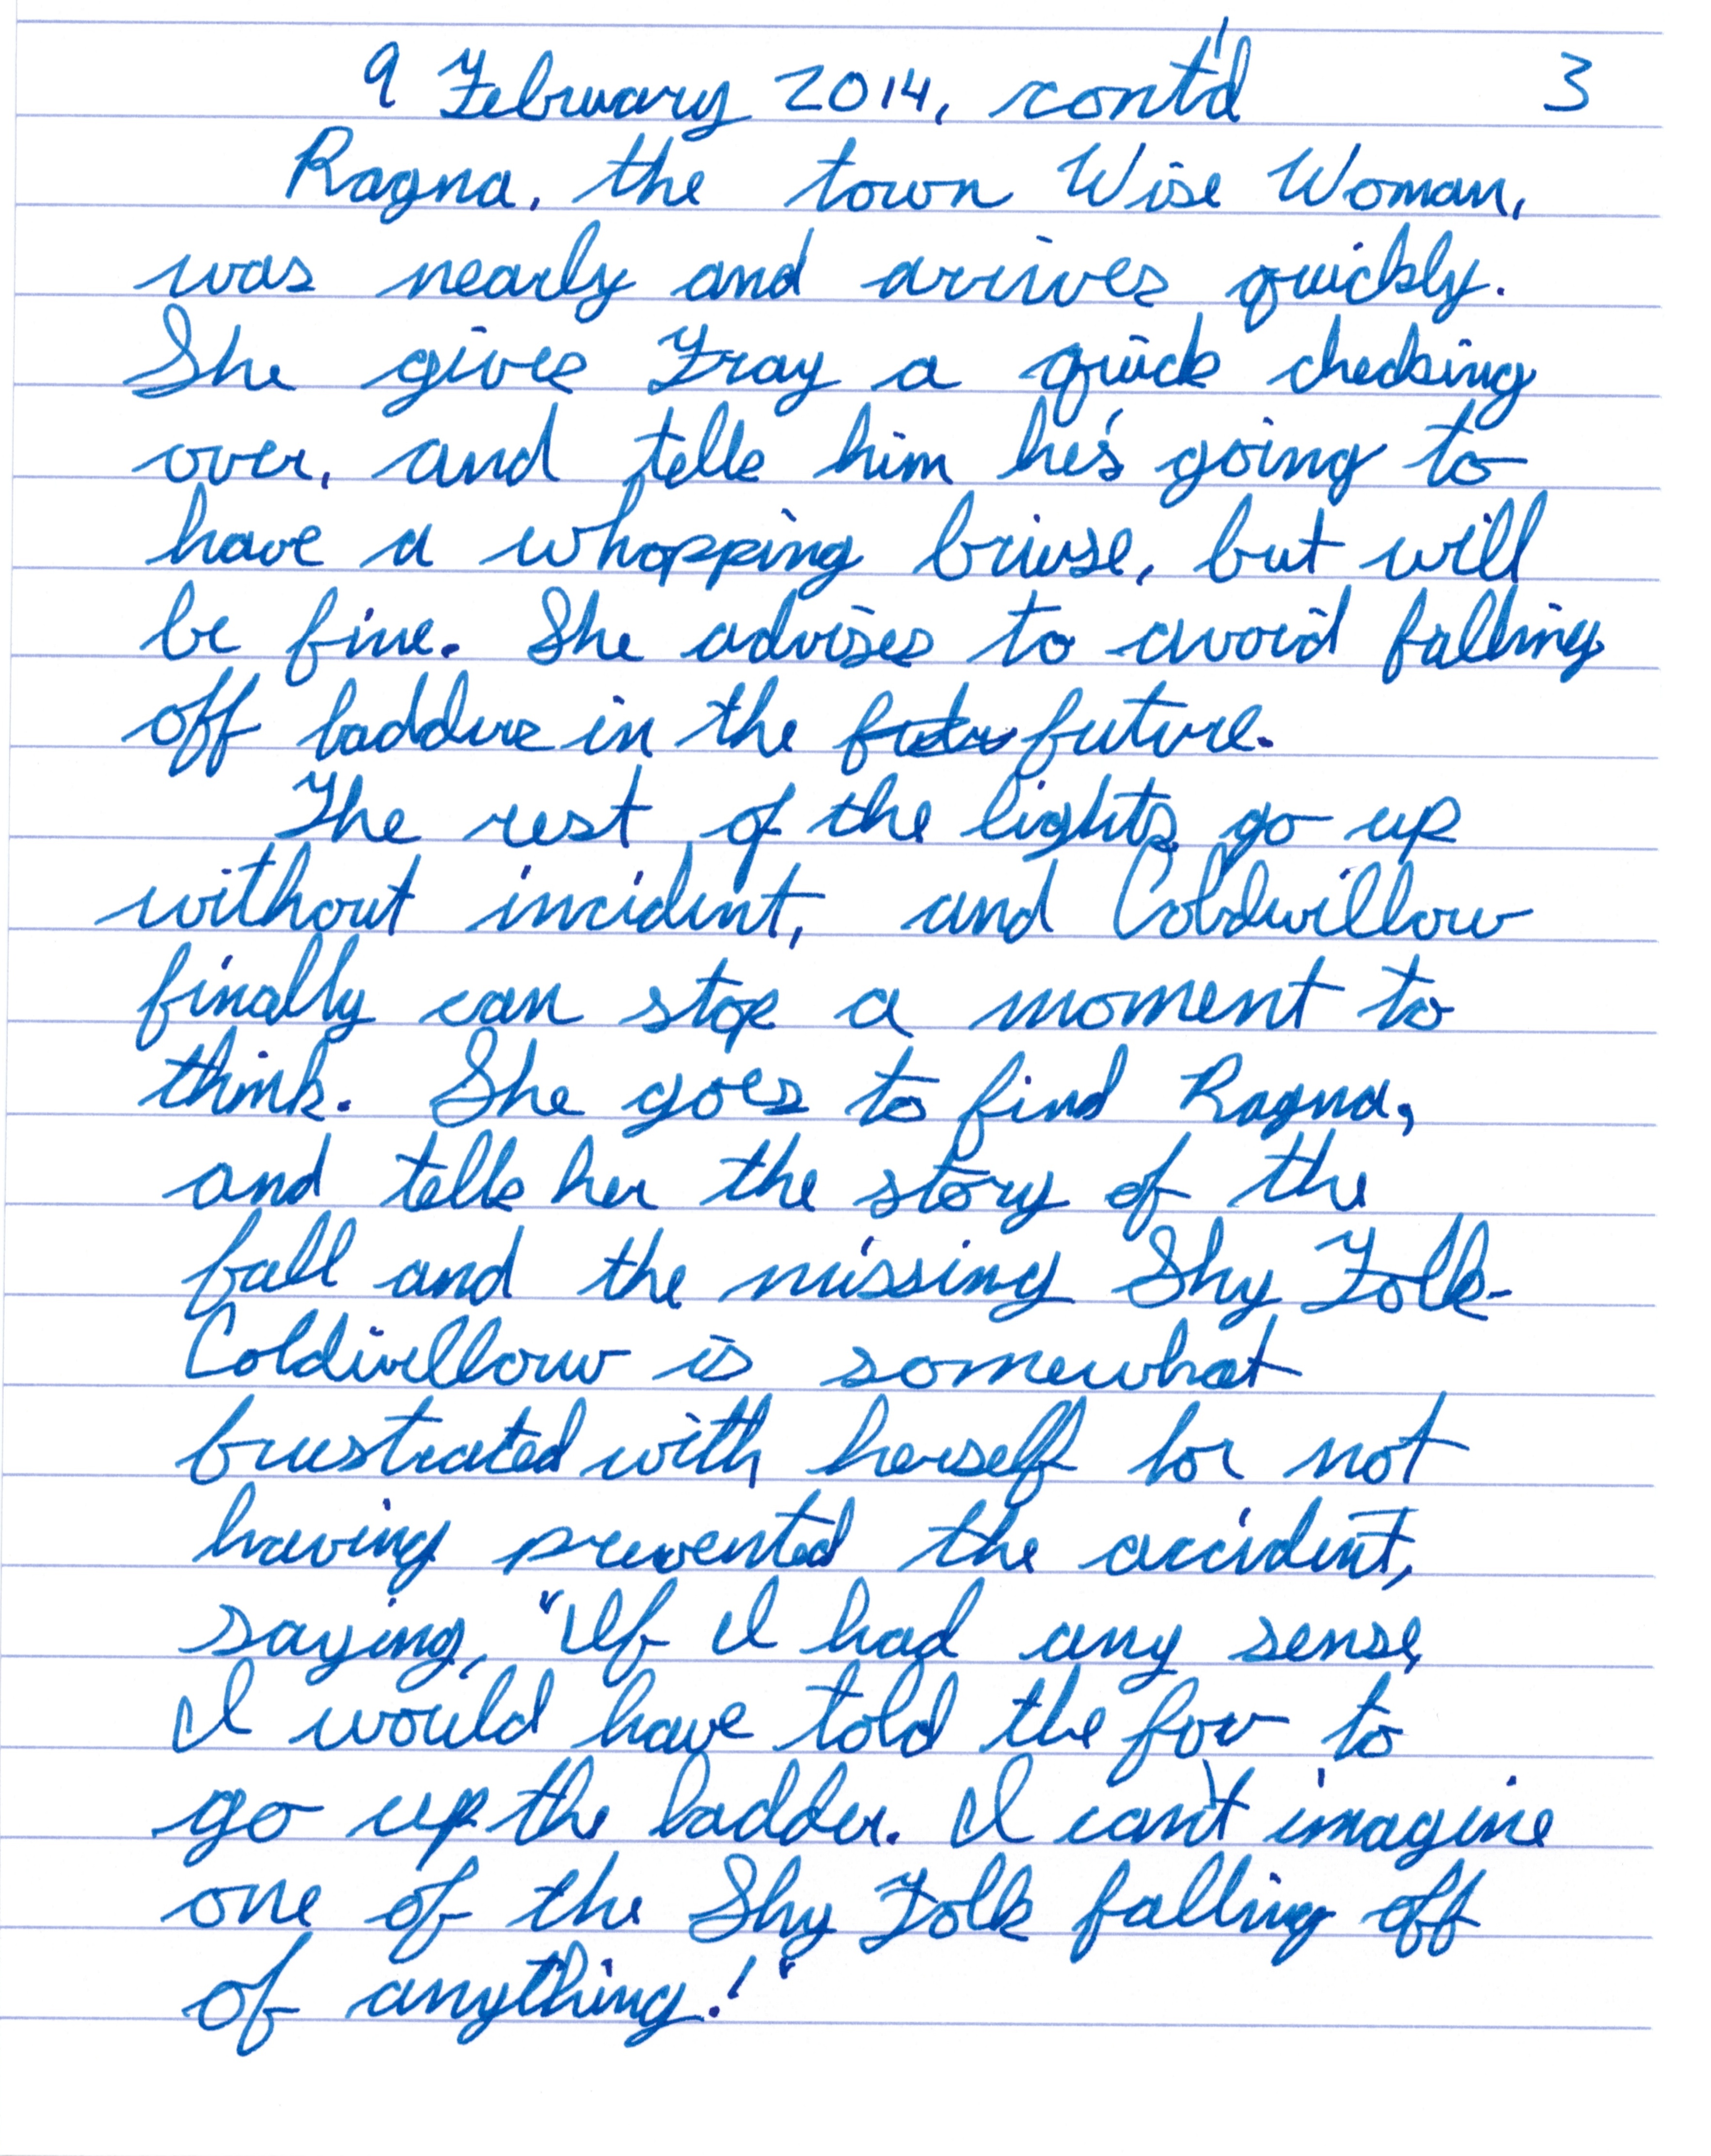 9 February 2014, cont'd 3
Ragna, the town Wise Woman,
was nearly and arrives quickly.
She gives Fray a quick checking
over, and tells him he's going to
have a whopping bruise, but will
be fine. She advises to avoid falling
off ladders in the futur future.
The rest of the lights go up
without incident, and Coldwillow
finally can stop a moment to
think. She goes to find Ragna,
and tells her the story of the
fall and the missing Shy Folk.
Coldwillow is somewhat
frustrated with herself for not
having prevented the accident,
saying, "If I had any sense,
I would have told the fov to
go up the ladder. I can't imagine
one of the Shy Folk falling off
of anything!"